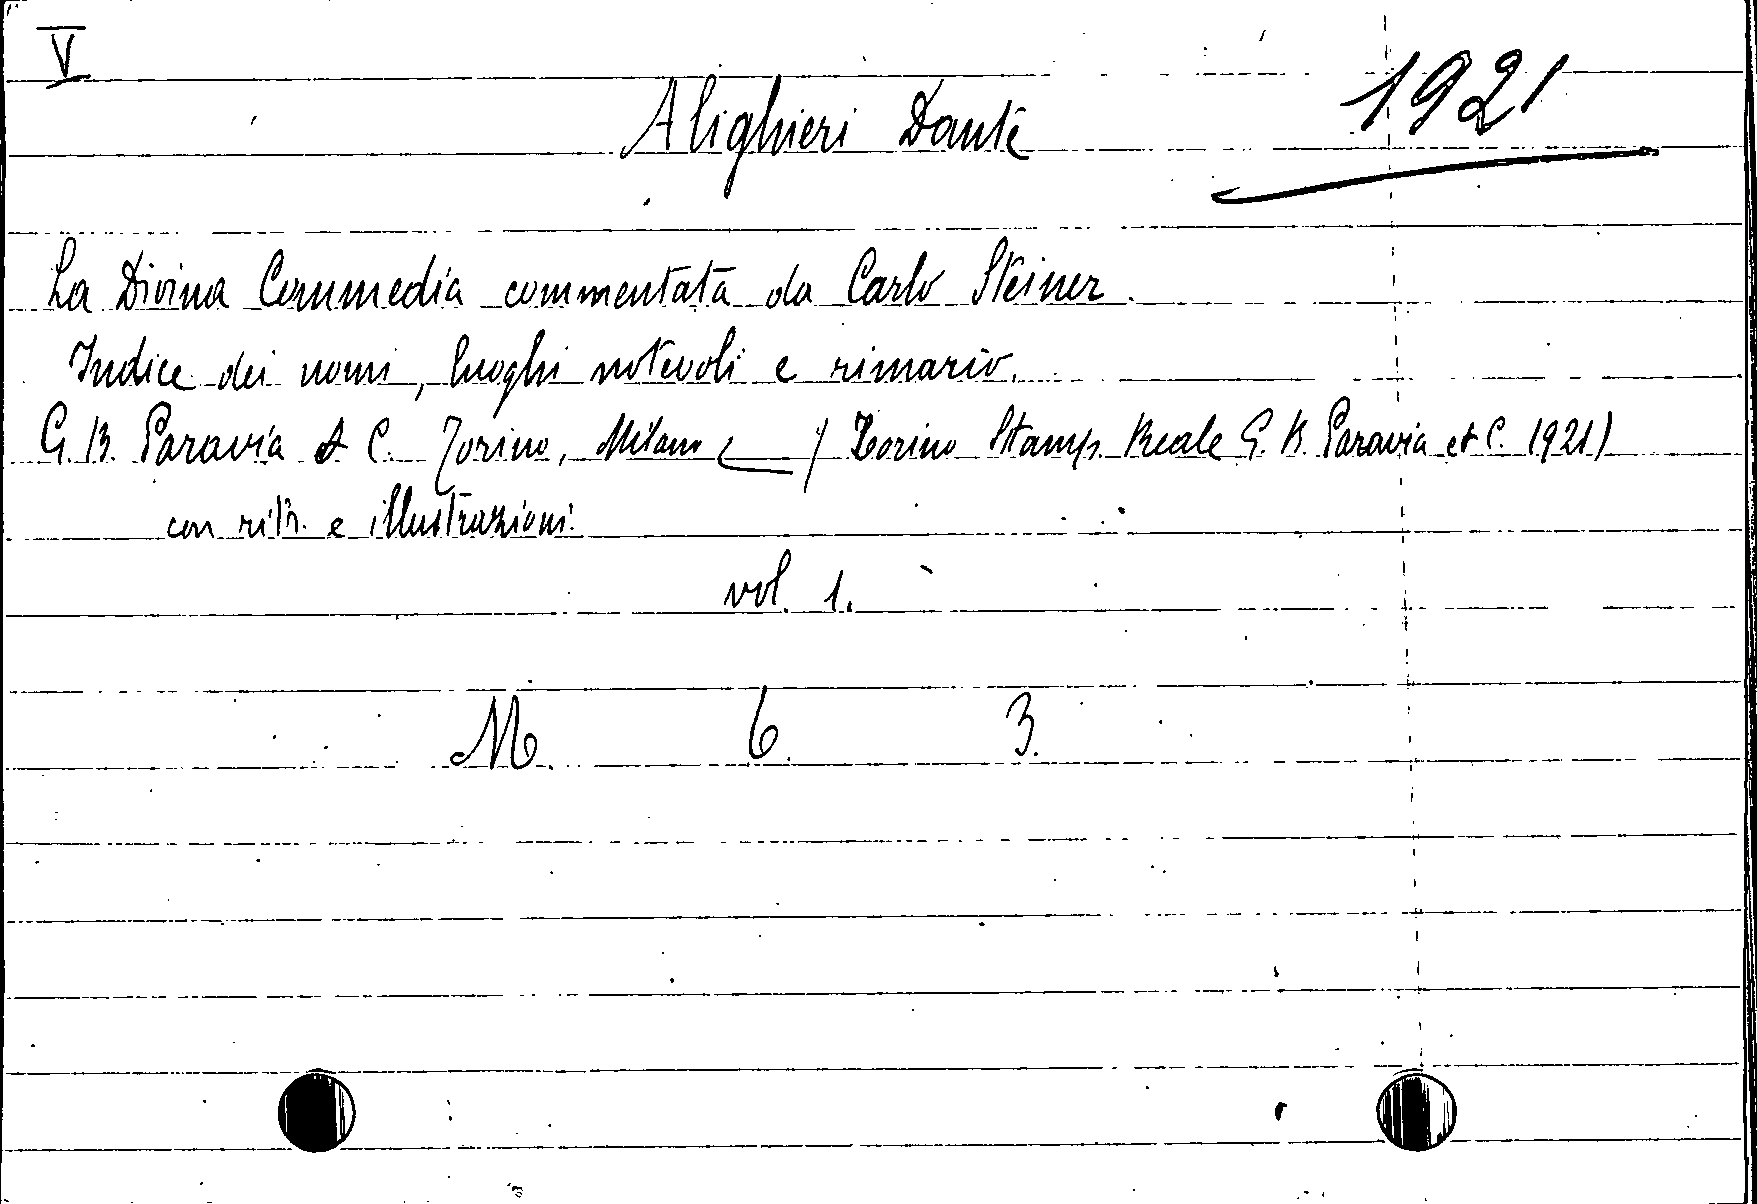 V
1921
Alighieri Dante
La Divina Commedia commentata da Carlo Steiner.
Indice dei nomi, luoghi notevoli e rimario.
G. B. Paravia & C. Torino, Milano / Torino Stamp. Reale G. B. Paravia et C. 1921)
con ritr. e illustrazioni.
vol. 1.
M. 6. 3.